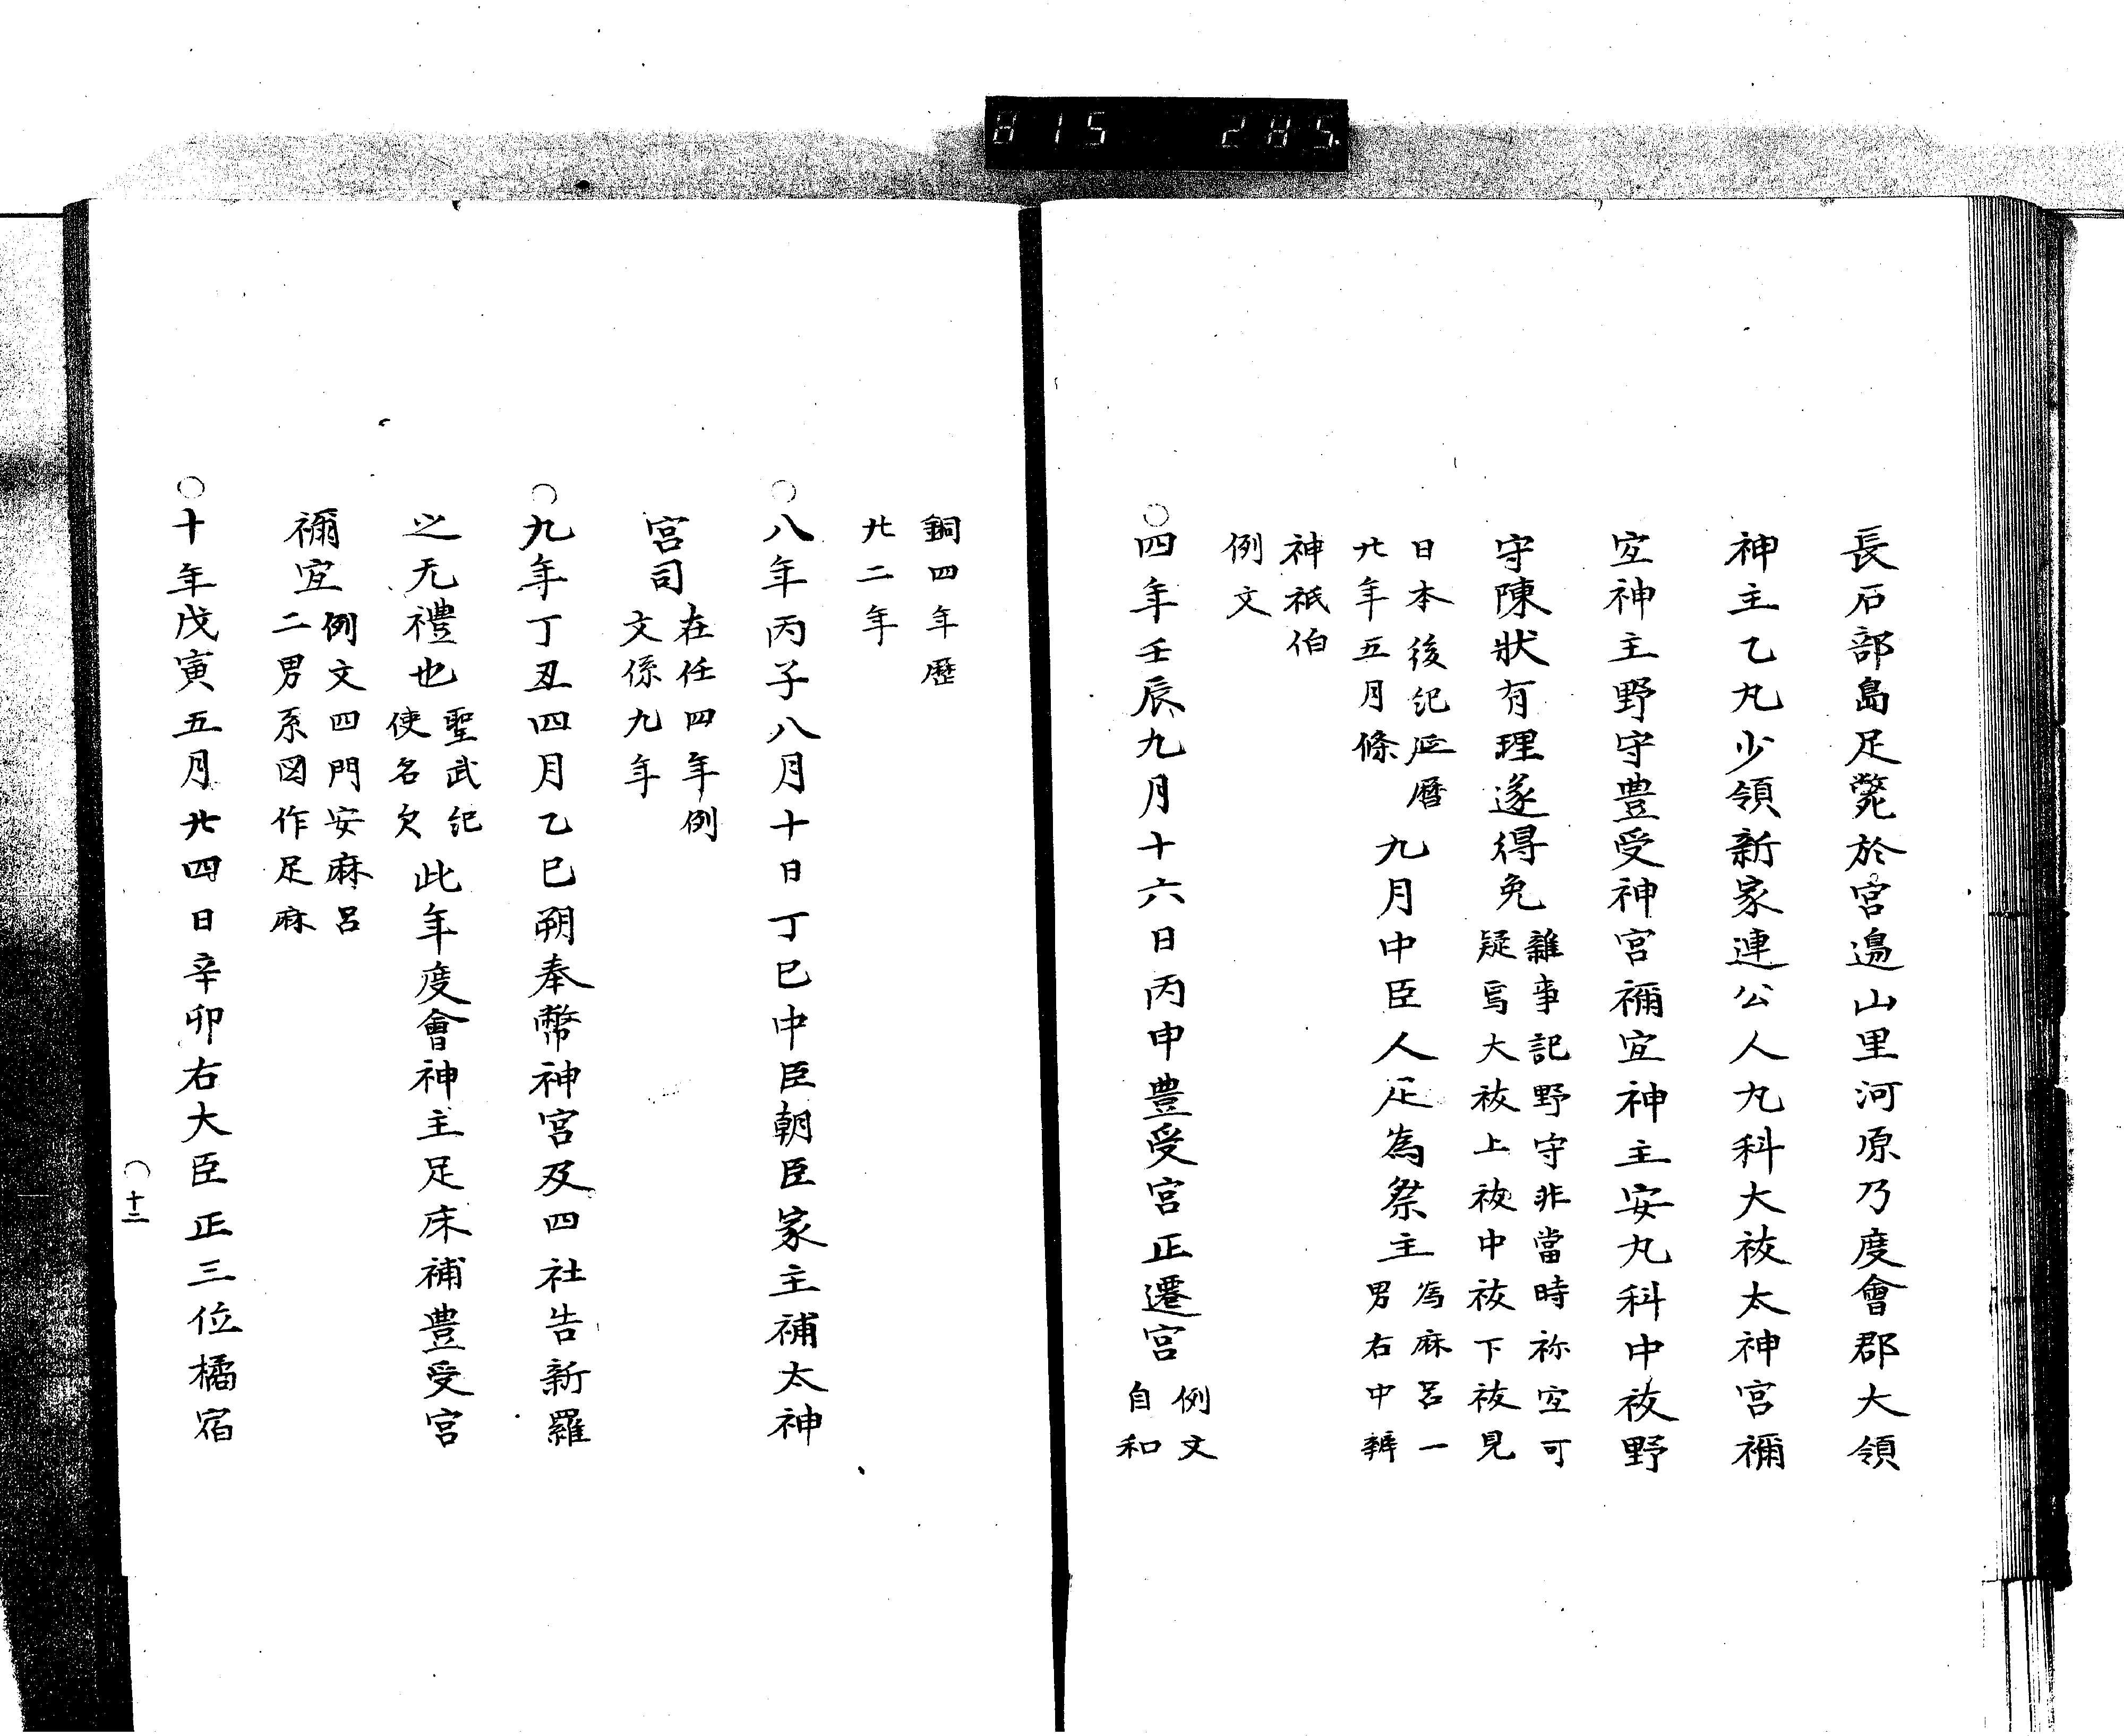 815 285
長石部島足斃於宮邊山里河原乃度會郡大領
神主乙丸少領新家連公人丸科大祓太神宮禰
宜神主野守豊受神宮禰宜神主安丸科中祓野
守陳状有理遂得免
雜事記野守非當時祢宜可
疑焉大祓上祓中祓下祓見
日本後紀延暦
廿年五月條
九月中臣人足為祭主
為麻呂一
男右中辨
神祇伯
例文
○四年壬辰九月十六日丙申豊受宮正遷宮
例文
自和
銅四年歴
廿二年
○八年丙子八月十日丁巳中臣朝臣家主補太神
宮司
在任四年例
文係九年
○九年丁丑四月乙巳朔奉幣神宮及四社告新羅
之无禮也
聖武紀
使名欠
此年度會神主足床補豊受宮
禰宜
例文四門安麻呂
二男系図作足麻
○十年戊寅五月廿四日辛卯右大臣正三位橘宿
○十二